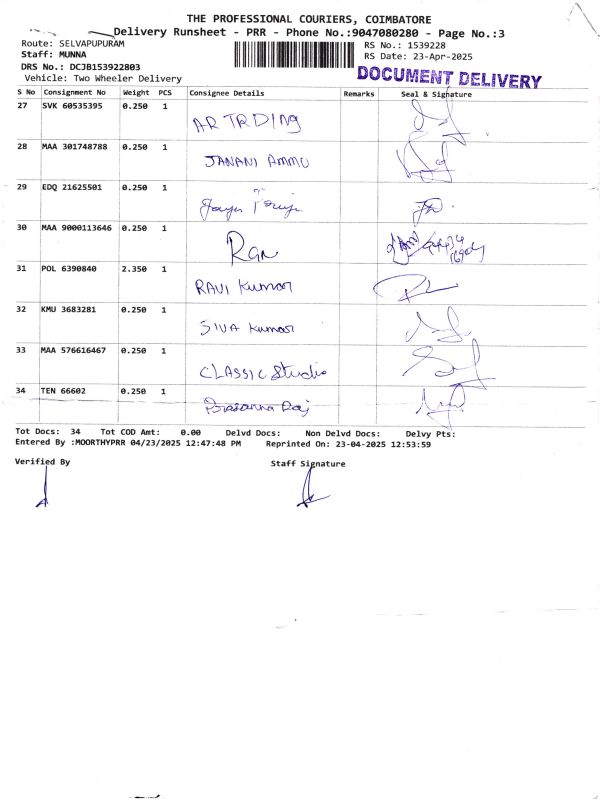 THE PROFESSIONAL COURIERS, COIMBATORE
Delivery Runsheet - PRR - Phone No.:9047080280 - Page No.:3
Route: SELVAPUPURAM
RS No.: 1539228
Staff: MUNNA
RS Date: 23-Apr-2025
DRS No.: DCJB153922803
DOCUMENT DELIVERY
Vehicle: Two Wheeler Delivery
S No Consignment No Weight PCS Consignee Details Remarks Seal & Signature
27 SVK 60535395 0.250 1
AR TRDING
28 MAA 301748788 0.250 1
JANANI AMMU
29 EDQ 21625501 0.250 1
30 MAA 9000113646 0.250 1
31 POL 6390840 2.350 1
RAVI Kumar
32 KMU 3683281 0.250 1
SIVA Kumar
33 MAA 576616467 0.250 1
CLASSIC Studio
34 TEN 66602 0.250 1
Prasanna Raj
Tot Docs: 34 Tot COD Amt: 0.00 Delvd Docs: Non Delvd Docs: Delvy Pts:
Entered By :MOORTHYPRR 04/23/2025 12:47:48 PM Reprinted On: 23-04-2025 12:53:59
Verified By Staff Signature